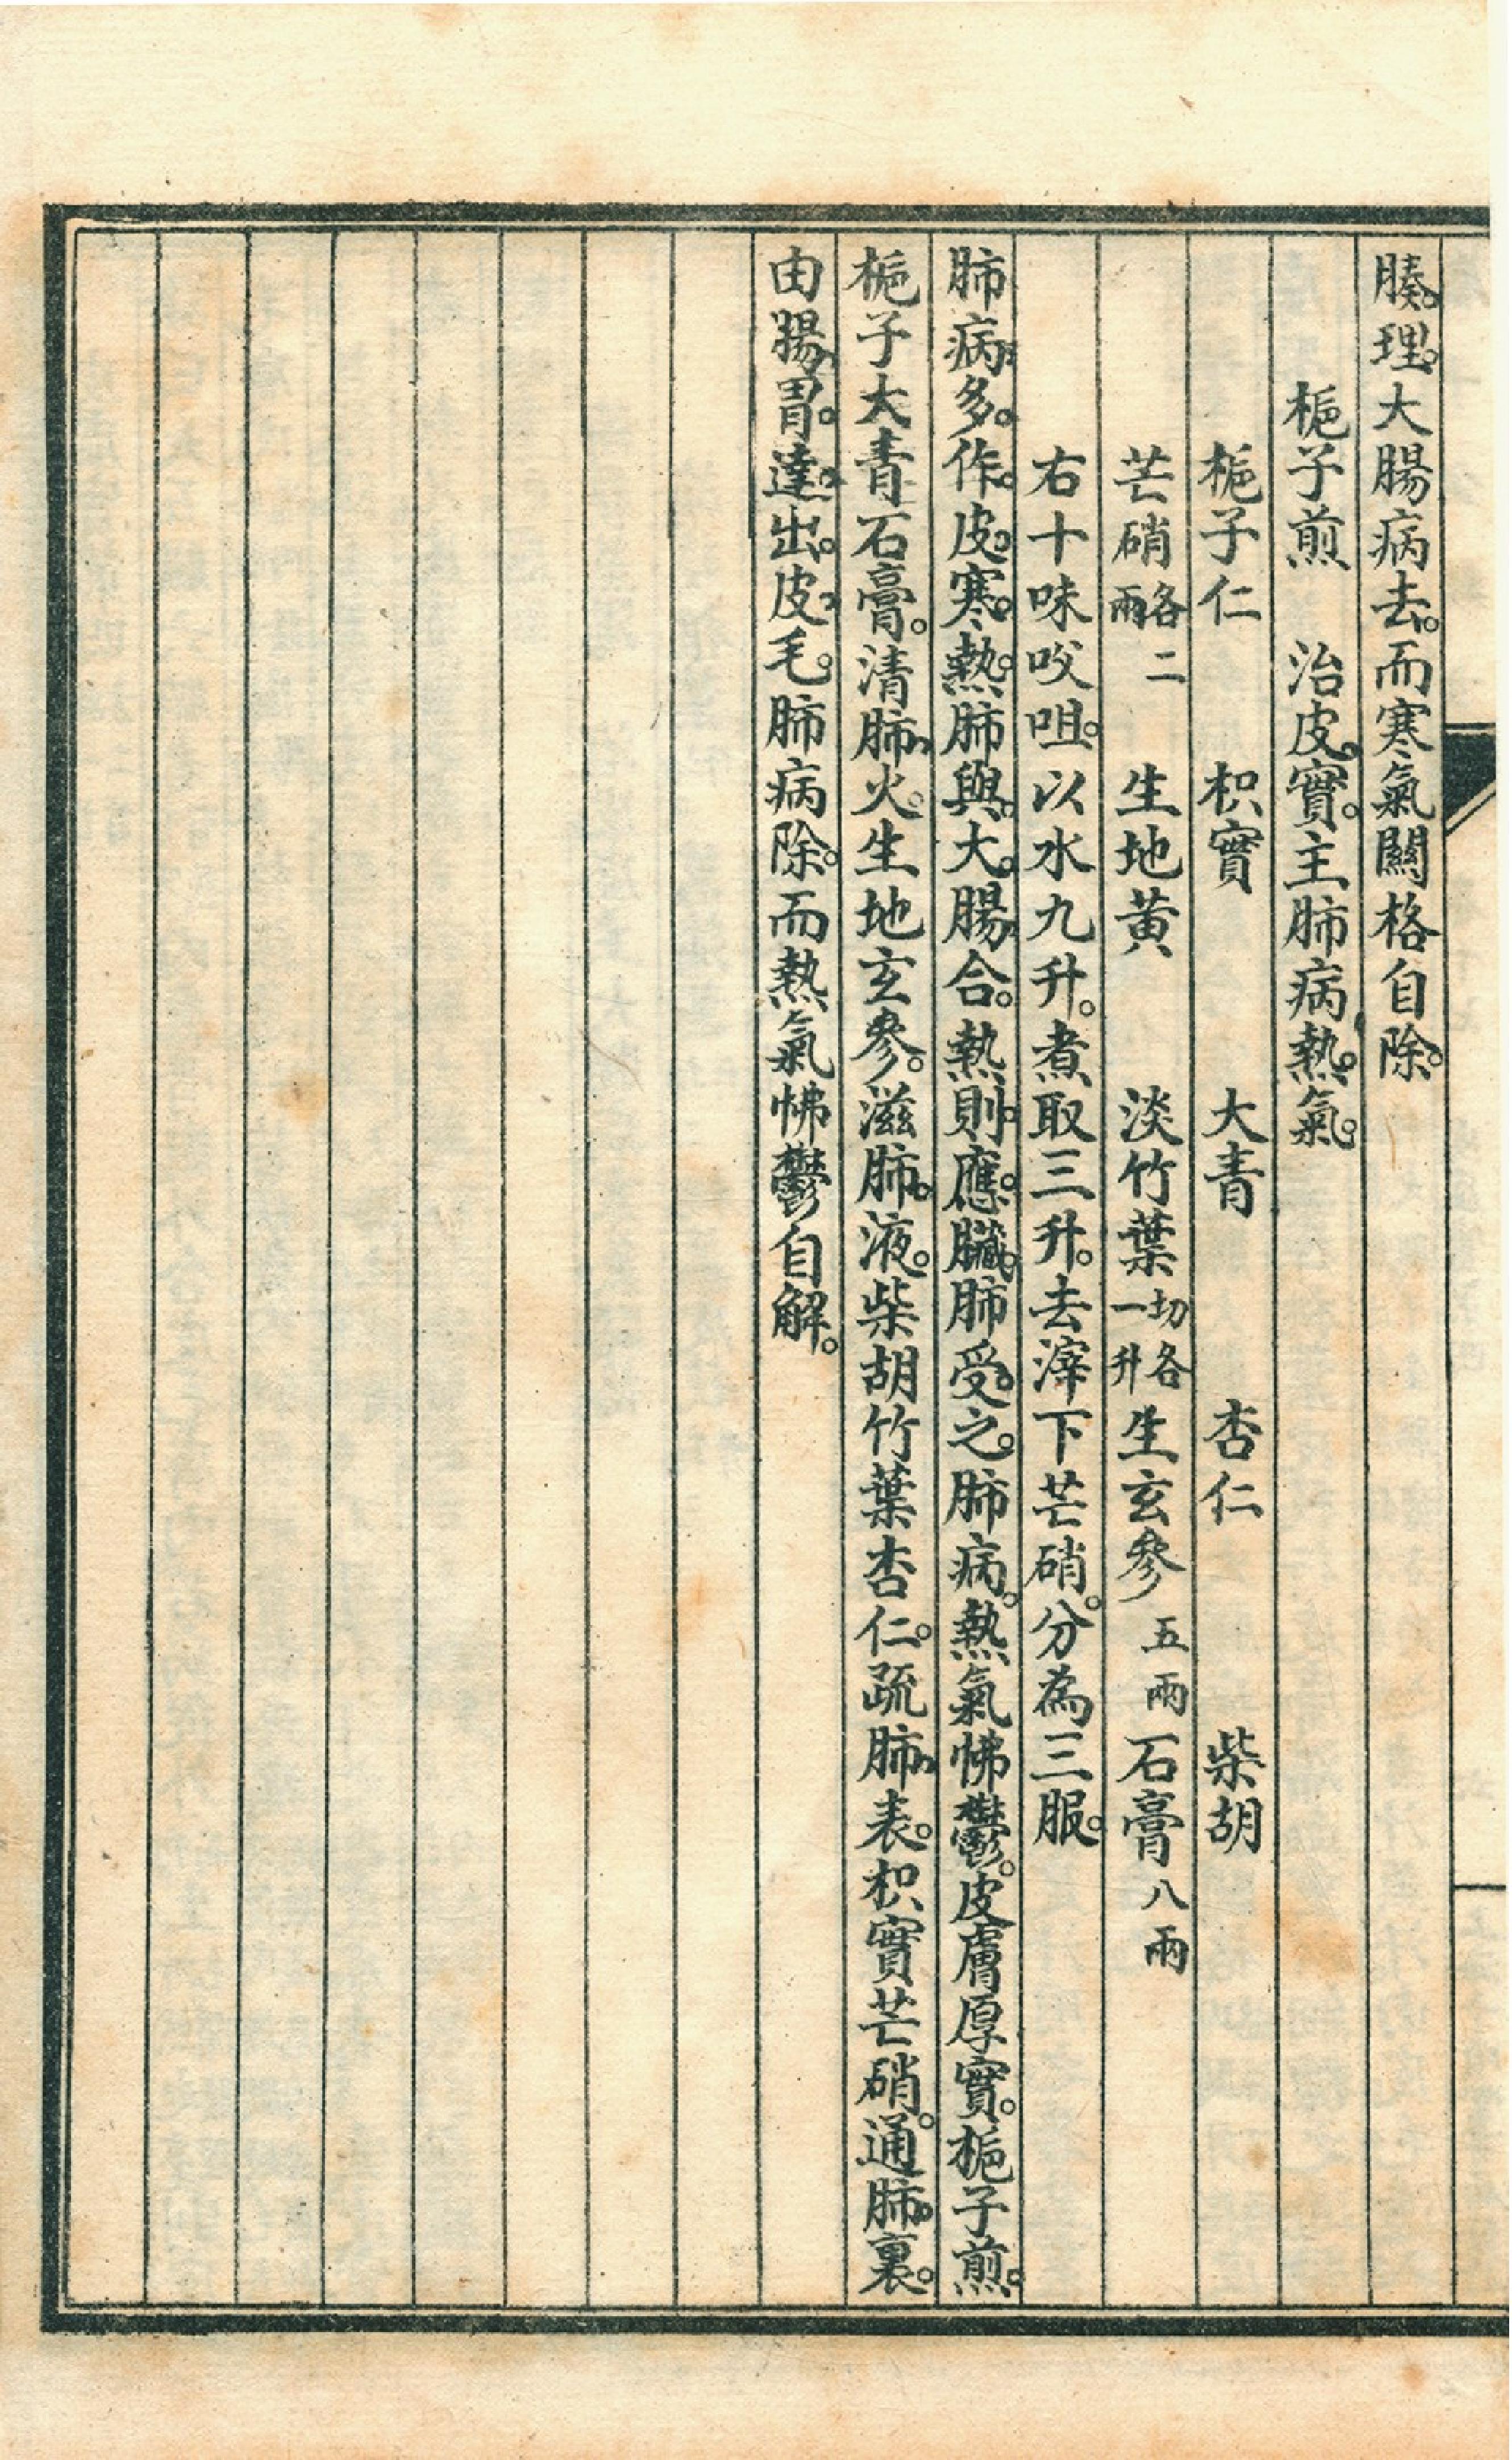 腠理。大腸病去。而寒氣關格自除。
梔子煎　治皮實。主肺病熱氣。
梔子仁　枳實　大青　杏仁　柴胡
芒硝各二兩　生地黃　淡竹葉切各一升　生玄參五兩　石膏八兩
右十味㕮咀。以水九升。煮取三升。去滓下芒硝。分為三服。
肺病多。作。皮寒。熱。肺與。大。腸合。熱則。應。臟。肺受。之。肺病。熱氣怫鬱。皮膚厚實。梔子煎。
梔子大青石膏。清肺火。生地玄參。滋肺。液。柴胡竹葉杏仁。疏肺表。枳實芒硝。通肺裏。
由腸胃。達。出。皮毛。肺病除。而熱氣怫鬱自解。